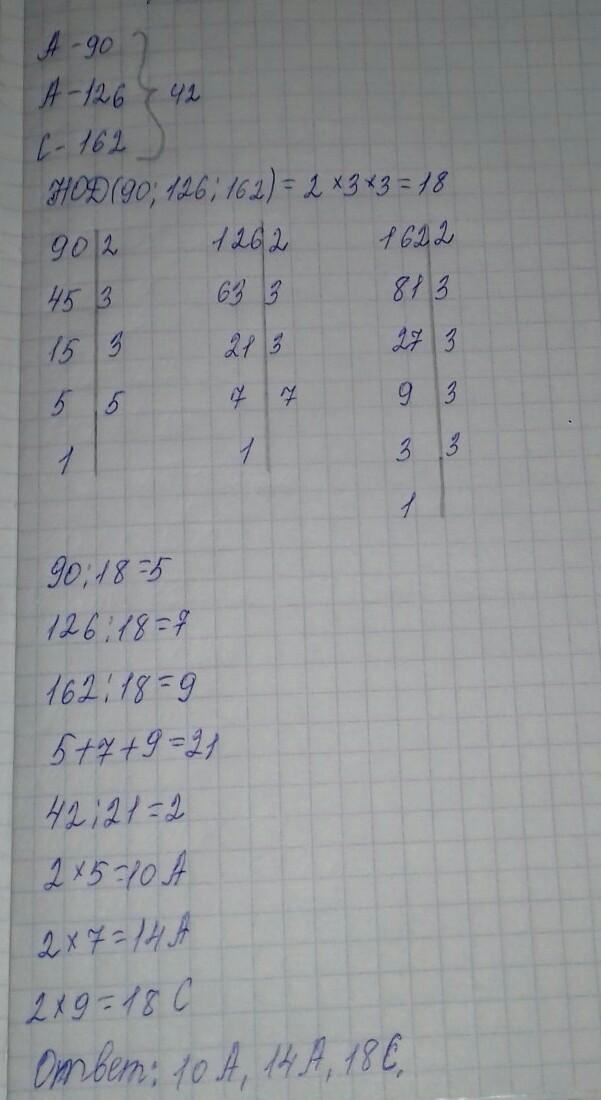 А - 90
А - 126
С - 162
42
НОД(90; 126; 162) = 2 × 3 × 3 = 18
90 2 126 2 162 2
45 3 63 3 81 3
15 3 21 3 27 3
5 5 7 7 9 3
1 1 3 3
1
90 : 18 = 5
126 : 18 = 7
162 : 18 = 9
5 + 7 + 9 = 21
42 : 21 = 2
2 × 5 = 10 А
2 × 7 = 14 А
2 × 9 = 18 С
Ответ: 10 А, 14 А, 18 С.